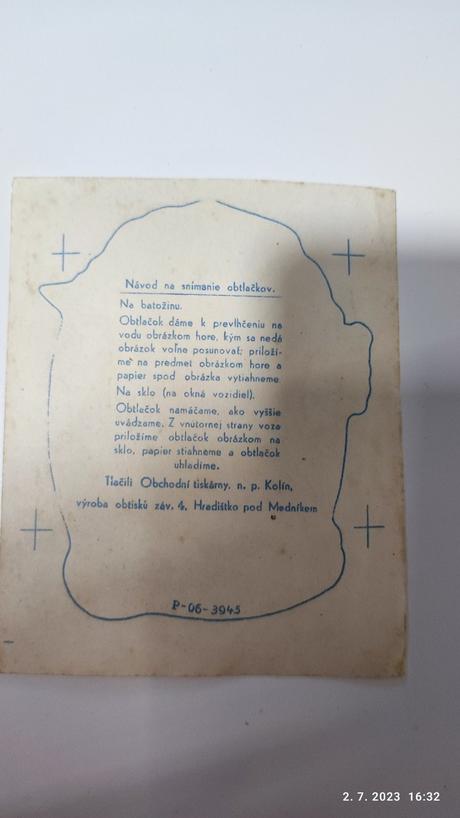 Návod na snímanie obtlačkov.
Na batožinu.
Obtlačok dáme k prevlhčeniu na
vodu obrázkom hore, kým sa nedá
obrázok voľne posunovať; priloží-
me na predmet obrázkom hore a
papier spod obrázka vytiahneme.
Na sklo (na okná vozidiel).
Obtlačok namáčame, ako vyššie
uvádzame. Z vnútornej strany voza
priložíme obtlačok obrázkom na
sklo, papier stiahneme a obtlačok
uhladíme.
Tlačili Obchodní tiskárny, n. p. Kolín,
výroba obtisků záv. 4, Hradištko pod Medníkem
P-06-3945
2. 7. 2023 16:32